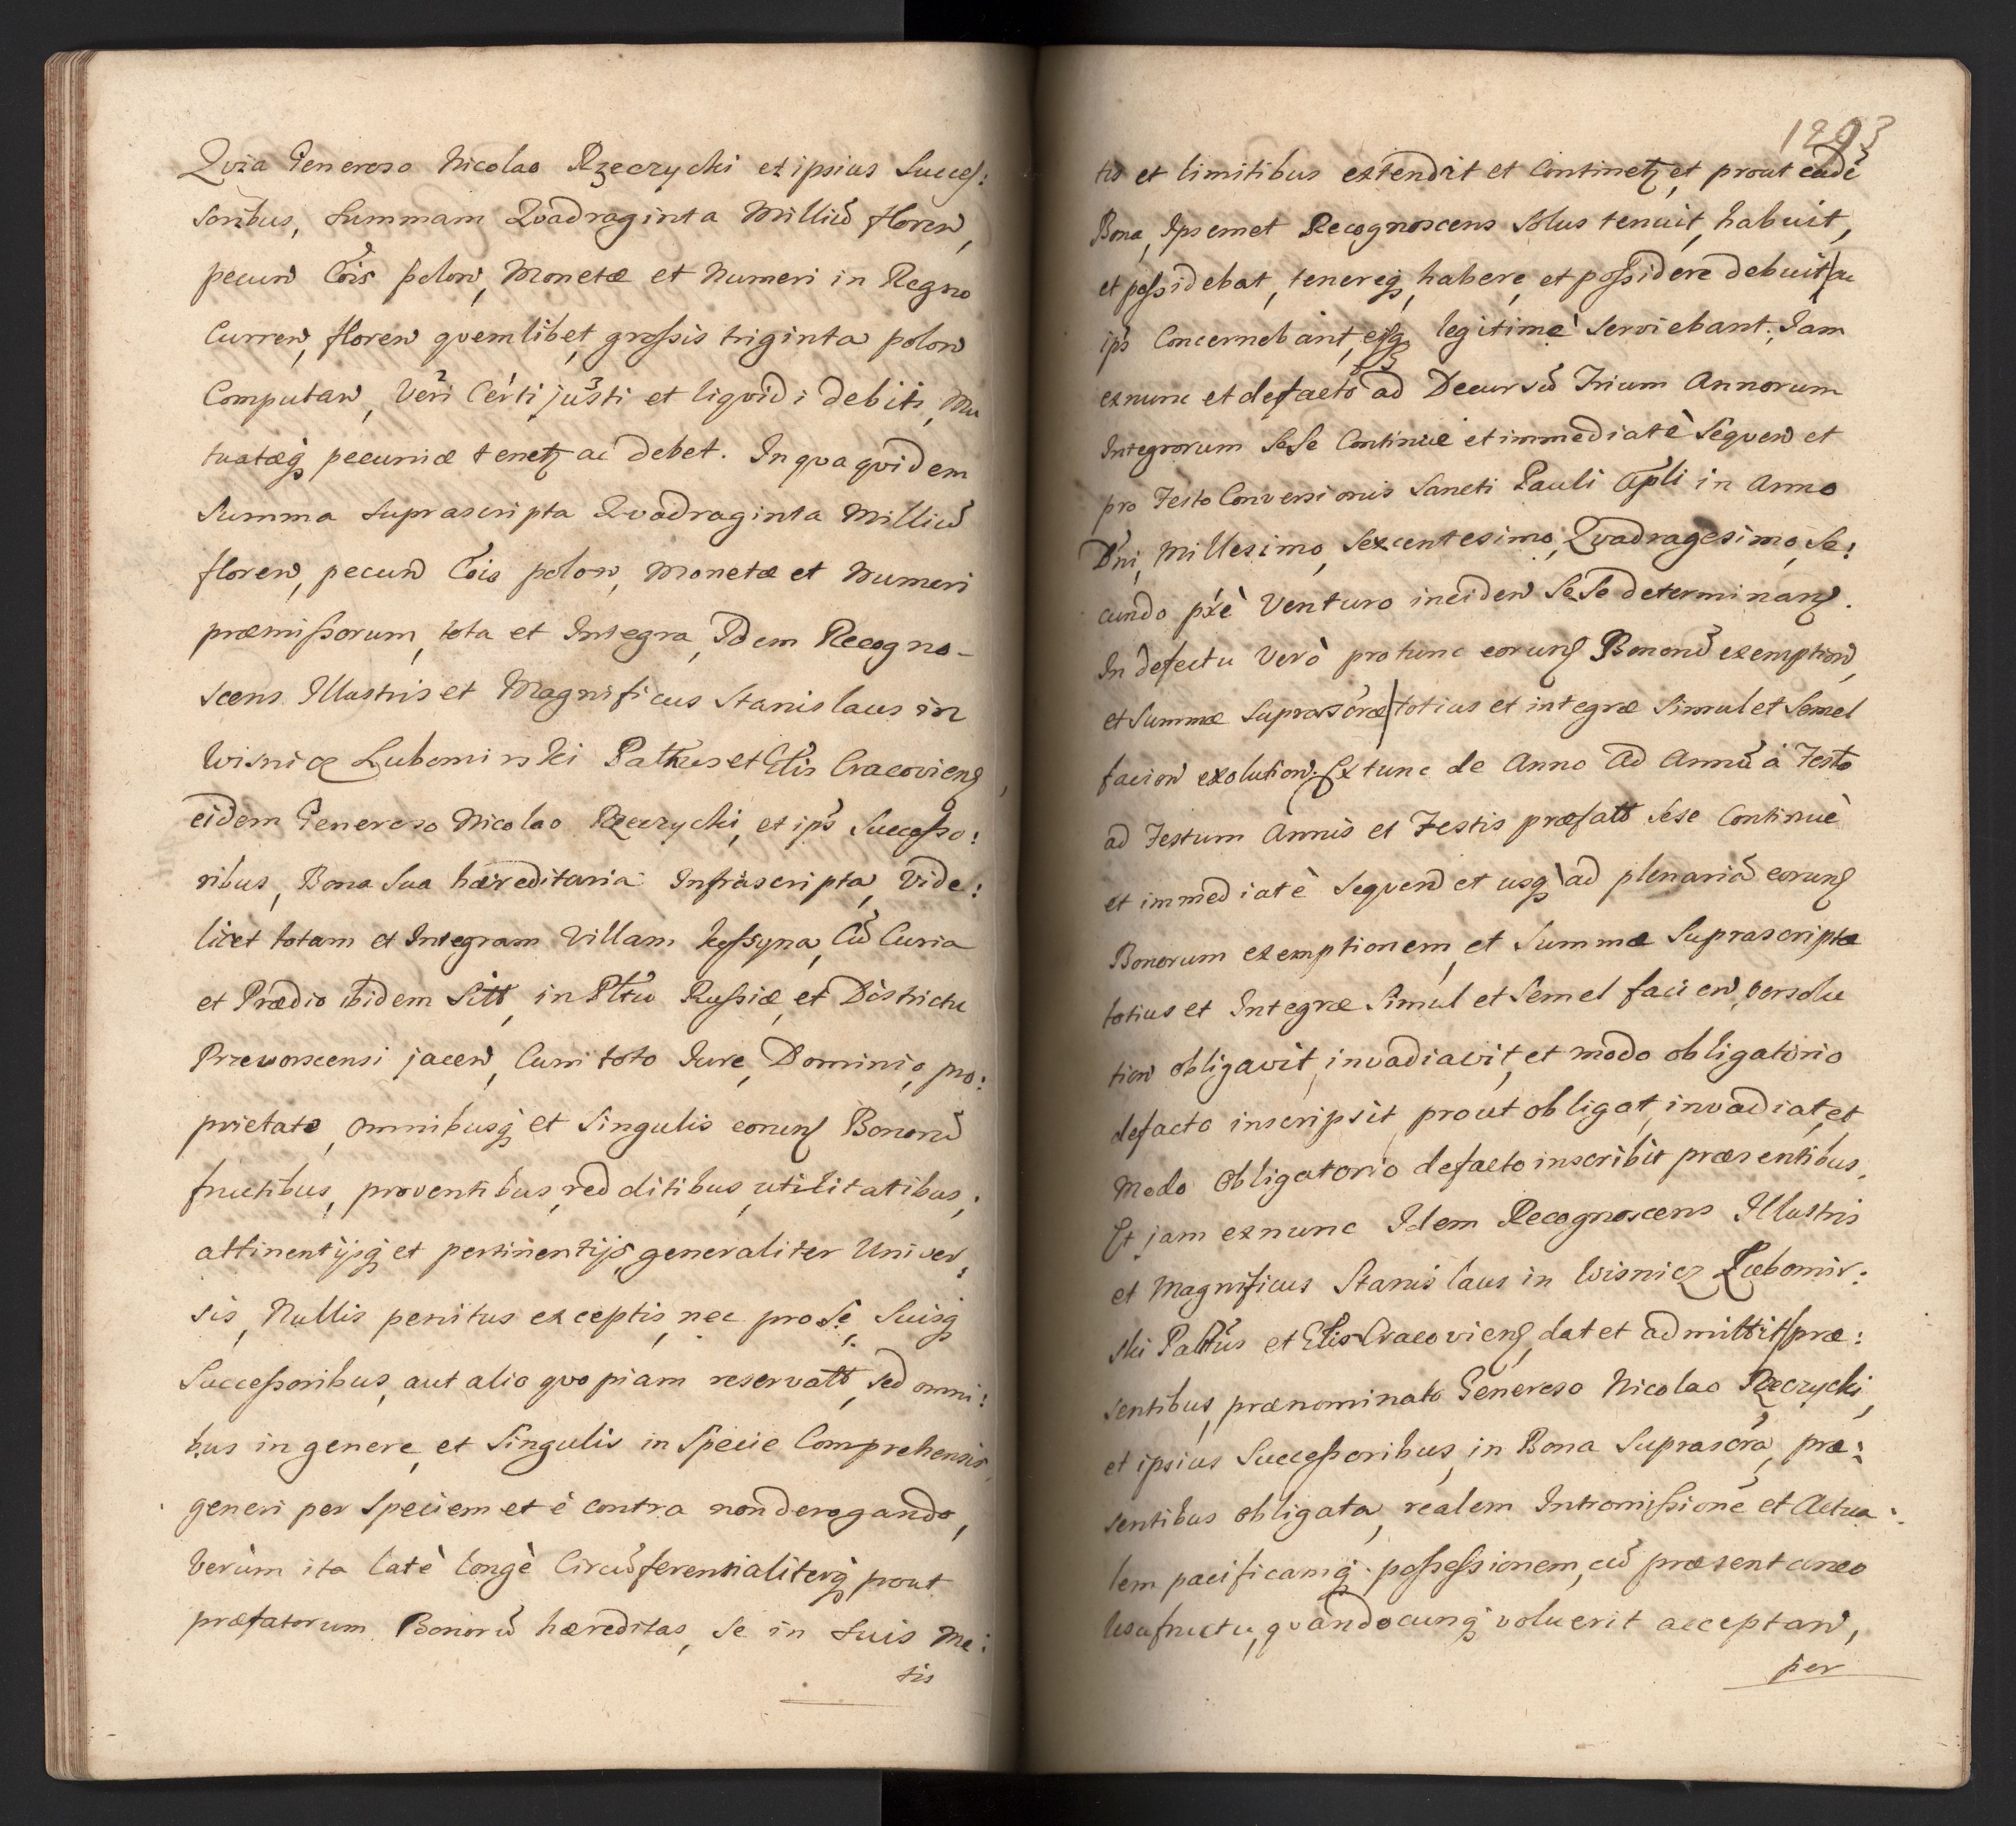 Qvia Generoso Nicolao Rzeczycki et ipsius Succes:
soribus, Summam Qvadraginta Milliũ floren,
pecun Cõis polon, Monetæ et Numeri in Regno
Curren, floren qvemlibet, grossis triginta polon
Computan, Veri Certi justi et liqvidi debiti, Mu
tuatæq; pecuniæ tenetz ac debet. In qva qvidem
Summa Suprascripta Qvadraginta Milliũ
floren, pecun Cõis polon, Monetæ et Numeri
præmissorum, tota et Integra, Idem Recogno-
scens Illustris et Magnificus Stanislaus in
Wisnicz Lubomirski Paltnus et Glis Cracovien,
eidem Generoso Nicolao Rzeczycki, et ips Successo:
ribus, Bona Sua hæreditaria Infrascripta, Vide:
licet totam et Integram Villam Kossyna, Cũ Curia
et Prædio ibidem Sitt, in Pltu Russiæ, et Districtu
Przeworscensi jacen, Cum toto Iure, Dominio, pro:
prietate, omnibusq; et Singulis eorund Bonorũ
fructibus, proventibus, redditibus, utilitatibus,
attinentijsq; et pertinentijs, generaliter Univer:
sis, Nullis penitus exceptis, nec pro Se, Suisq;
Successoribus, aut alio qvopiam reservatt, sed omni:
bus in genere, et Singulis in Specie Comprehensis,
generi per Speciem et è contra non derogando,
Verùm ita latè longè Circũferentialiterq; prout
præfatorum Bonorũ hæreditas, Se in Suis Me:
tis
1203
tis et limitibus extendit et Continetz, et prout eadẽ
Bona, Ipsemet Recognoscens Solus tenuit, habuit,
et possidebat, tenereq;, habere, et possidere debuit, ac
ips Concernebant, eiq; legitimè Serviebant. Jam
exnunc et defacto ad Decursũ Trium Annorum
Integrorum Sese Continuè et immediatè Seqven et
pro Festo Conversionis Sancti Pauli Apli in Anno
Dni, Millesimo, Sexcentesimo, Qvadragesimo, Se:
cundo pxè Venturo inciden Sese determinan.
In defectu Verò protunc eorund Bonorũ exemption,
et Summæ Suprascræ totius et integræ Simul et Semel
facion exolution. Extunc de Anno ad Annũ à Festo
ad Festum Annis et Festis præfatt Sese Continuè
et immediatè Seqven et usq; ad plenariã eorund
Bonorum exemptionem, et Summæ Suprascriptæ
totius et Integræ Simul et Semel facien, versolu
tion obligavit, invadiavit, et modo obligatorio
defacto inscripsit prout obligat, invadiat, et
Modo Obligatorio defacto inscribit præsentibus.
Et jam exnunc Idem Recognoscens Illustris
et Magnificus Stanislaus in Wisnicz Lubomir:
ski Paltnus et Glis Cracovien, dat et admittit præ:
sentibus, prænominato Generoso Nicolao Rzeczycki,
et ipsius Successoribus, in Bona Suprascra, præ:
sentibus obligata, realem Intromissionẽ et Actua:
lem pacificamq; possessionem, cũ præsentaneo
Usufructu, qvandocunq; voluerit acceptan,
per